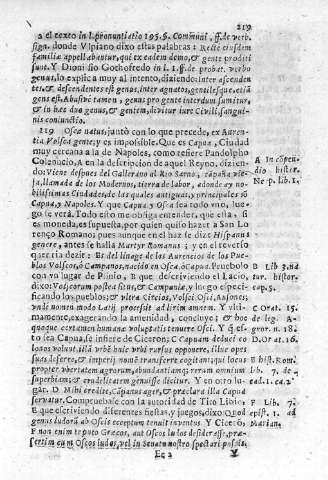 219
a el texto in l. pronuntiatio 195. §. Communi, ff. de verb.
sign. donde Vlpiano dixo estas palabras: Recte eiusdem
familia appellabuntur, qui ex eadem domo, & gente proditi
sunt. Y Dionisio Gothofredo in l. 1. ff. de probat. verbo
genus, lo explica muy al intento, diziendo: Inter ascenden
tes, & descendentes est genus, inter agnatos, gentilesque etiã
gens est. Abusivè tamen, genus pro gente interdum sumitur,
& in hac dua genus, & gentem, divitur iure Civili, sangui-
nis coniunctio.
219 Osca natus, junto con lo que precede, ex Auren-
tia Volsca gente, y es impossible. Que es Capua, Ciudad
muy cercana a la de Napoles, como refiere Pandolpho
Colenucio, A en la descripcion de aquel Reyno, diziẽ-
do: Viene despues del Gallerano al Rio Sarno, Campaña vie-
ja, llamada de los Modernos, tierra de labor, donde ay no-
bilissimas Ciudades, de las quales antiguas, y principales sõ
Capua, y Napoles. Y que Capua y Osca sea todo vno, lue-
go se verà. Todo esto me obliga entender, que esta, si
es moneda, es supuesta, por quien quiso hazer a San Lo-
renço Romano; pues aunque en el haz le dize Hispanus
genere, antes se halla Martyr Romanus; y en el reverso
querria dezir: Es del linage de los Aurencios de los Pue-
blos Volscos, ò Campanos, nacido en Osca, ò Capua. Pruebolo
con vn lugar de Plinio, B que descriviendo el Lacio,
dixo: Volscorum postea situs, & Campaniæ, y luego especi-
ficando los pueblos: & vltra Circios, Volsci Osci, Ausones;
vnde nomen modo Latij processit ad Lirim amnem. Y vlti-
mamente, exagerando la amenidad, concluye: & hoc
quoque certamen humanæ voluptatis tenuere Osci. Y q̃ es-
to sea Capua, se infiere de Ciceron; C Capuam deduci co
lonos volunt illã vrbẽ huic vrbi rursus opponere, illuc opes
suas deferre, & imperij nomẽ transferre cogitant; qui locus
propter vbertatem agrorum, abundantiamq; rerum omnium
superbiam; & crudelitatem genuisse dicitur. Y en otro lu-
gar. D Mihi crede, Campanus ager, & præclara illa Capua
servatur. Compruebase con la autoridad de Tito Libio,
E que escriviendo diferentes fiestas, y juegos, dixo: Quod
genus ludorũ ab Oscis receptum tenuit iuventus. Y Cicerõ,
F non enim te puto Græcos, aut Oscos ludos desiderasse, præ-
sertim cum Oscos ludos, vel in Senatu nostro spectari possis.
Ee 2 Y
A In cõpen-
dio histor.
Ne p. lib. 1.
B Lib 3. na
tur. histor.
cap. 5.
C Orat. 15.
de leg. A-
gror. n. 18.
D. Orat. 16.
E hist. Rom.
lib. 7. de-
cad. 1. ca. 2
F Lib. 7.
epist. 1. ad
Marian.